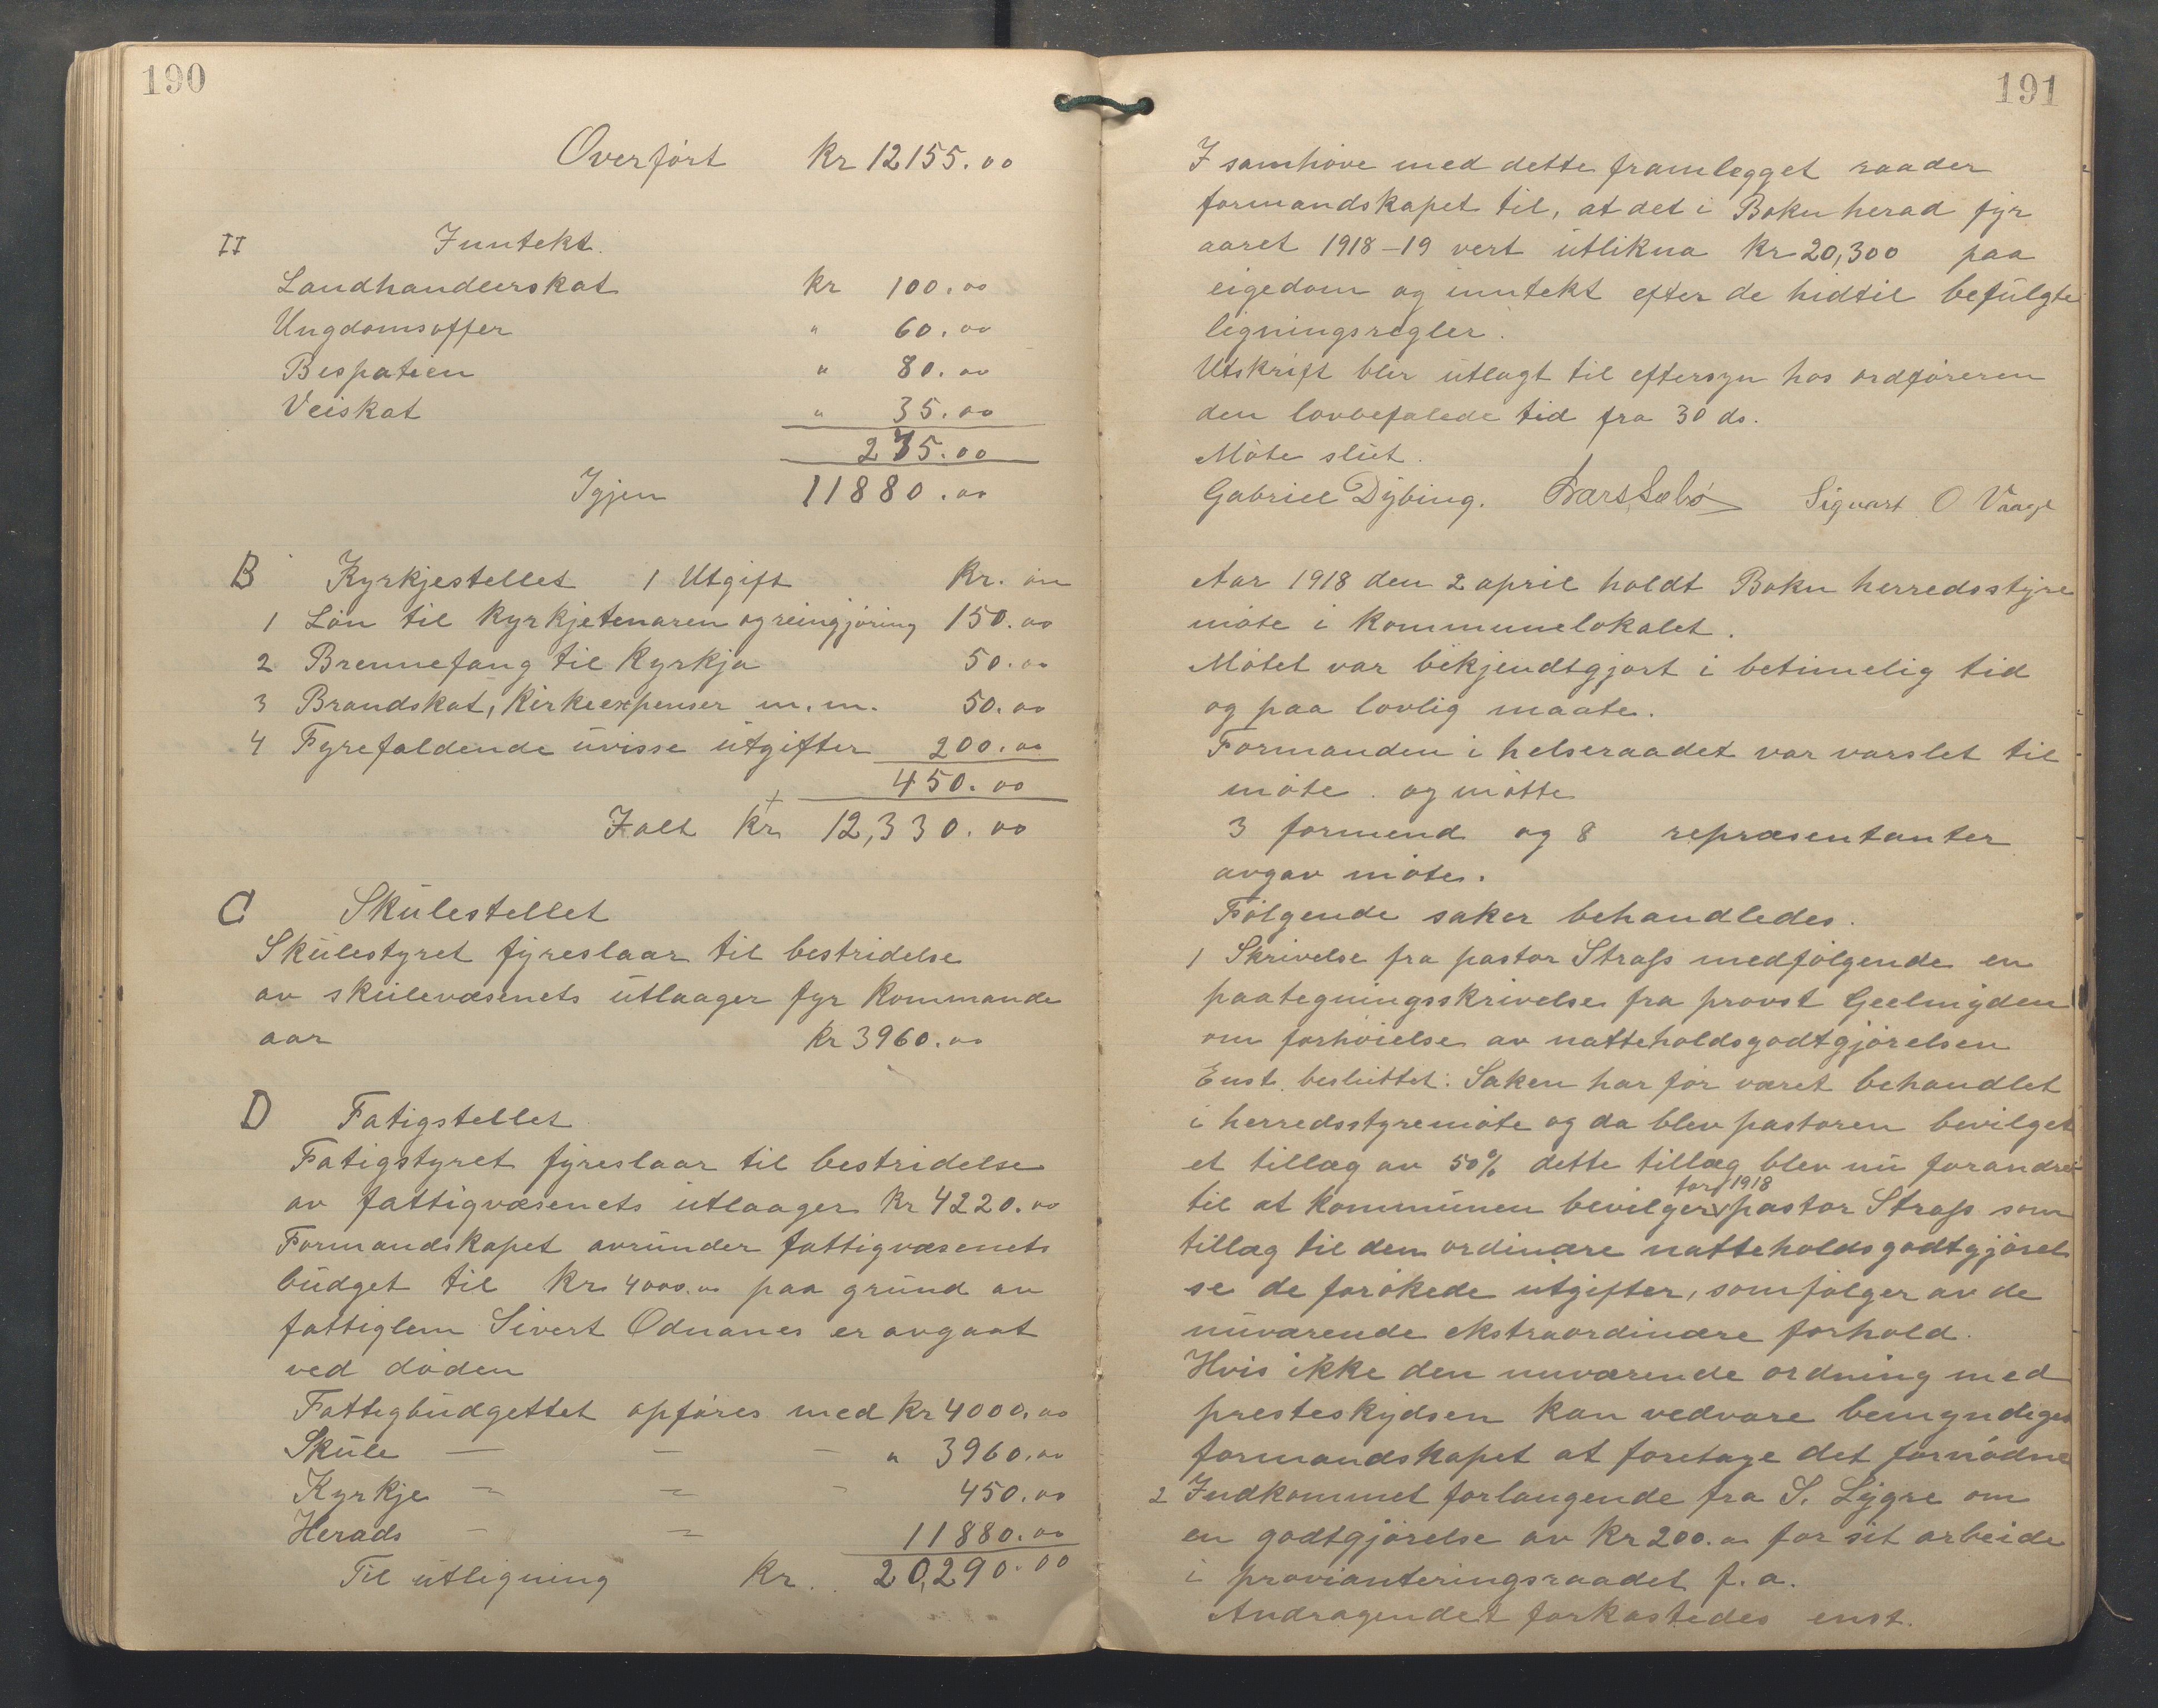 190
Overført Kr 12155.00
II Inntekt.
Landhandlerskat Kr 100.00
Ungdomsoffer " 60.00
Bespatien " 80.00
Veiskat " 35.00
275.00
Igjen 11880.00
B Kyrkjestellet 1 Utgift Kr. øre
1 Løn til Kyrkjetenaren og reingjøring 150.00
2 Brennefang til Kyrkja 50.00
3 Brandskat, Kirkeexpenser m.m. 50.00
4 Fyrefaldende uvisse utgifter 200.00
450.00
Ialt Kr 12,330.00
C Skulestellet
Skulestyret fyreslaar til bestridelse
av skulevæsenets utlaager fyr Kommande
aar Kr 3960.00
D Fatigstellet.
Fatigstyret fyreslaar til bestridelse
av fattigvæsenets utlaager Kr 4220.00
Formandskapet avrunder fattigvæsenets
budget til Kr 4000.00 paa grund av
fattiglem Sivert Odnanes er avgaat
ved døden
Fattigbudgettet opføres med Kr 4000.00
Skule — — — " 3960.00
Kyrkje — — — 450.00
Herads — — 11880.00
Til utligning Kr. 20,290.00
191
I samhøve med dette framlegget raader
formandskapet til, at det i Bokn herad fyr
aaret 1918-19 vert utlikna Kr 20,300 paa
eigedom og inntekt efter de hidtil befulgte
ligningsregler.
Utskrift blir utlagt til eftersyn hos ordføreren
den lovbefalede tid fra 30 ds.
Møte slut.
Gabriel Dybing. Lars Sæbø Sigvart O Vaage
Aar 1918 den 2 april holdt Bokn herredsstyre
møte i Kommunelokalet.
Møtet var bekjendtgjort i betimelig tid
og paa lovlig maate.
Formanden i helseraadet var varslet til
møte. og møtte
3 formend og 8 repræsentanter
avgav møte.
Følgende saker behandledes.
1 Skrivelse fra pastor Strass medfølgende en
paategningsskrivelse fra provst Geelmyden
om forhøielse av natteholdsgodtgjørelsen
Enst. besluttet: Saken har før været behandlet
i herredsstyremøte og da blev pastoren bevilget
et tillæg av 50% dette tillæg blev nu forandret
for 1918
til at kommunen bevilger pastor Strass som
tillæg til den ordinære natteholdsgodtgjørel
se de forøkede utgifter, som følger av de
nuværende ekstraordinære forhold.
Hvis ikke den nuværende ordning med
presteskydsen kan vedvare bemyndiges
formandskapet at foretage det fornødne
2 Indkommet forlangende fra S. Lygre om
en godtgjørelse av Kr 200.00 for sit arbeide
i provianteringsraadet f.a.
Andragendet forkastedes enst.